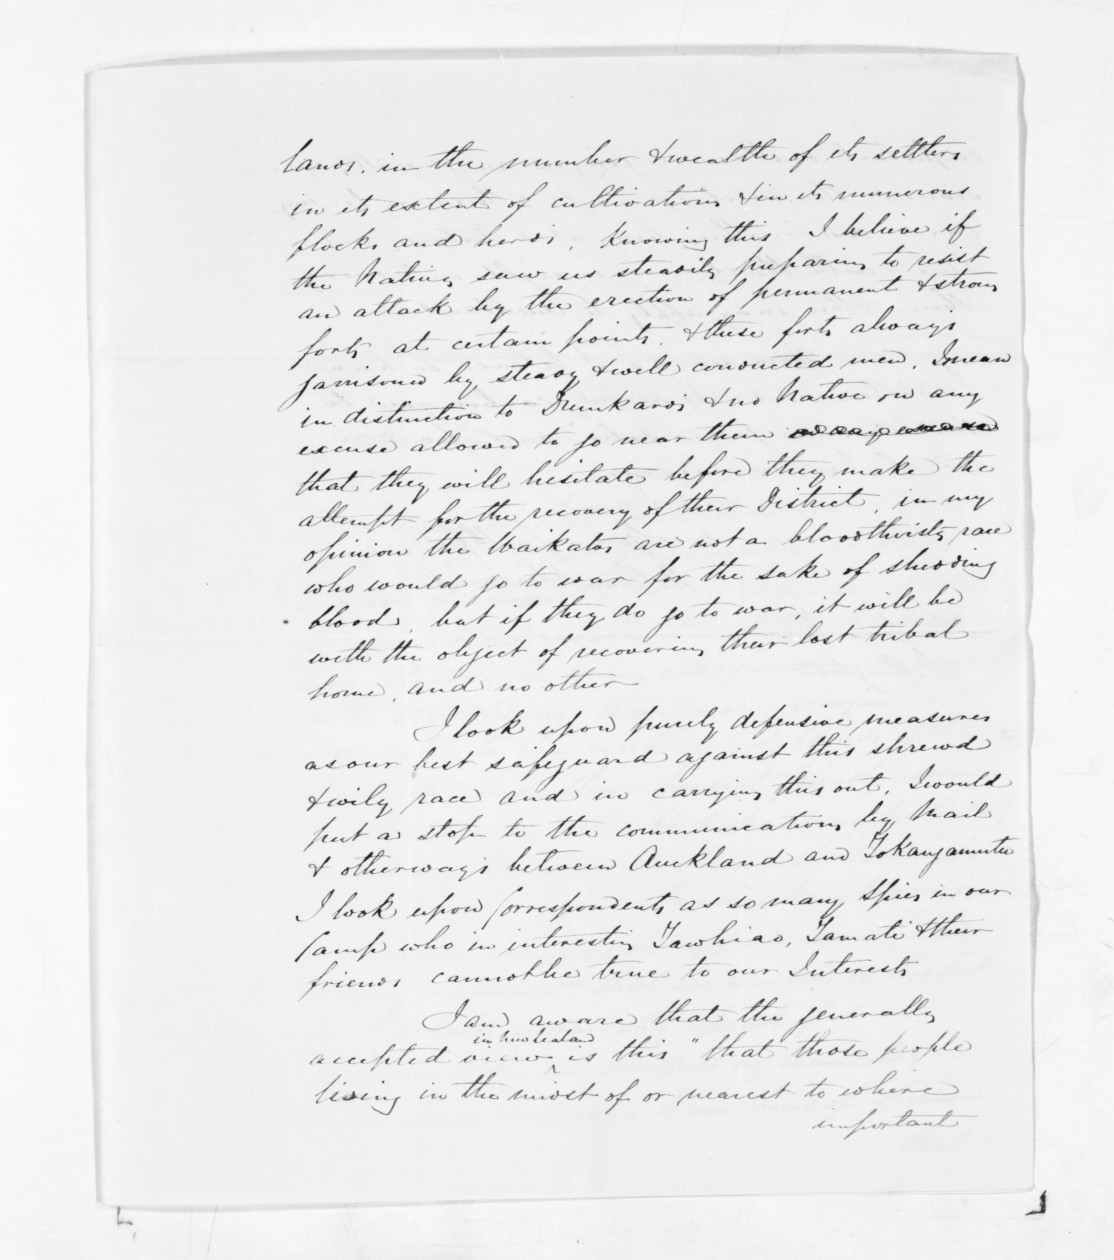 lands. in the number & wealth of its settlers
in its extent of cultivations & in its numerous
flocks and herds. Knowing this I believe if
the Natives saw us steadily preparing to resist
an attack by the erection of permanent & strong
forts at certain points. & these forts always
garrisoned by steady & well conducted men. I mean
in distinction to Drunkards & no Native on any
excuse allowed to go near them
that they will hesitate before they make the
attempt for the recovery of their District. in my
opinion the Waikatos are not a bloodthirsty race
who would go to war for the sake of shedding
blood. but if they do go to war, it will be
with the object of recovering their lost tribal
home. and no other
I look upon purely defensive measures
as our best safeguard against this shrewd
& wily race and in carrying this out. I would
put a stop to the communications by Mail
& otherways between Auckland and Tokangamutu
I look upon Correspondents as so many Spies in our
Camp who in interesting Tawhiao, Tamati & their
friends cannot be true to our Interests
I am aware that the generally
in New Zealand
accepted view is this "that those people
living in the midst of or nearest to where
important